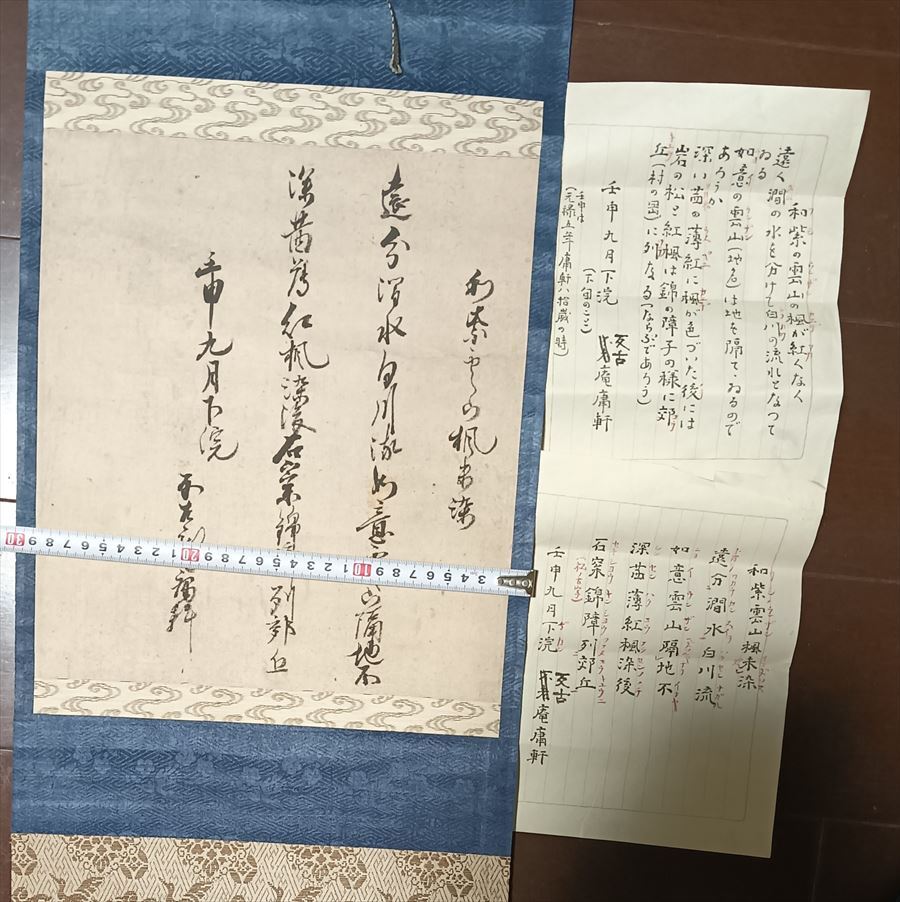 和紫雲山楓未染
遠分澗水白川流如意雲山隔地不
深茜薄紅楓染後石窠錦障列郊丘
壬申九月下浣
庸軒
和紫の雲山の楓が紅くなく
遠く澗の水を分けて白川の流れとなつて
ゐる
如意の雲山(地名)は地を隔てゝゐるので
あらうか
深い茜の薄紅に楓が色づいた後には
岩の松と紅楓は錦の障子の様に郊
丘(村の岡)に列なる(ならぶであろう)
壬申九月下浣
(下旬のこと)
庵庸軒
壬申は
(元禄五年庸軒八拾歳の時)
和紫雲山楓未染
遠分澗水白川流
如意雲山隔地不
深茜薄紅楓染後
石窠錦障列郊丘
壬申九月下浣
庵庸軒
1 2 3 4 5 6 7 8 9 10 1 2 3 4 5 6 7 8 9 20 1 2 3 4 5 6 7 8 9 30